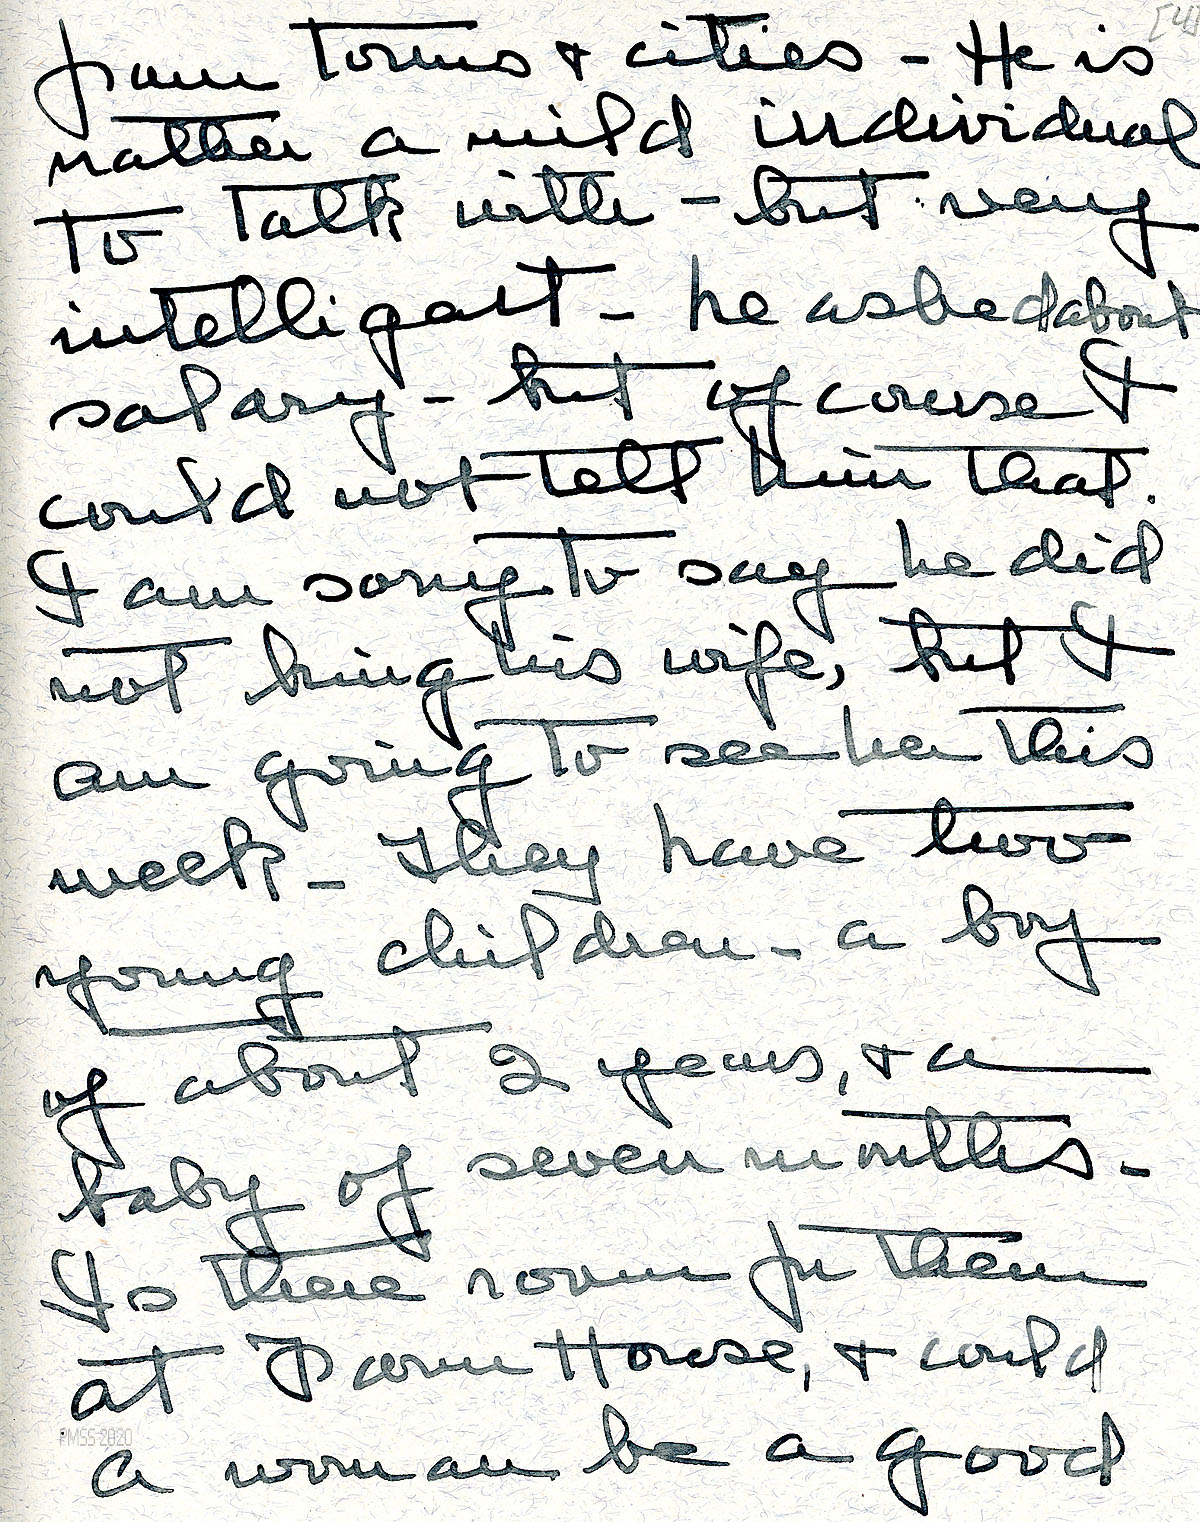 [4]
from towns & cities - He is
rather a mild individual
to talk with - but very
intelligent - he asked about
salary - but of course I
could not tell him that.
I am sorry to say he did
not bring his wife, but I
am going to see her this
week - They have two
young children - a boy
of about 2 years, & a
baby of seven months -
Is there room for them
at Farm House, & could
PMSS 2020
a woman be a good